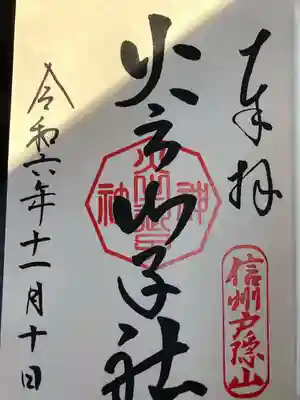 奉拝
信州戸隠山
火之御子社
令和六年十一月十日